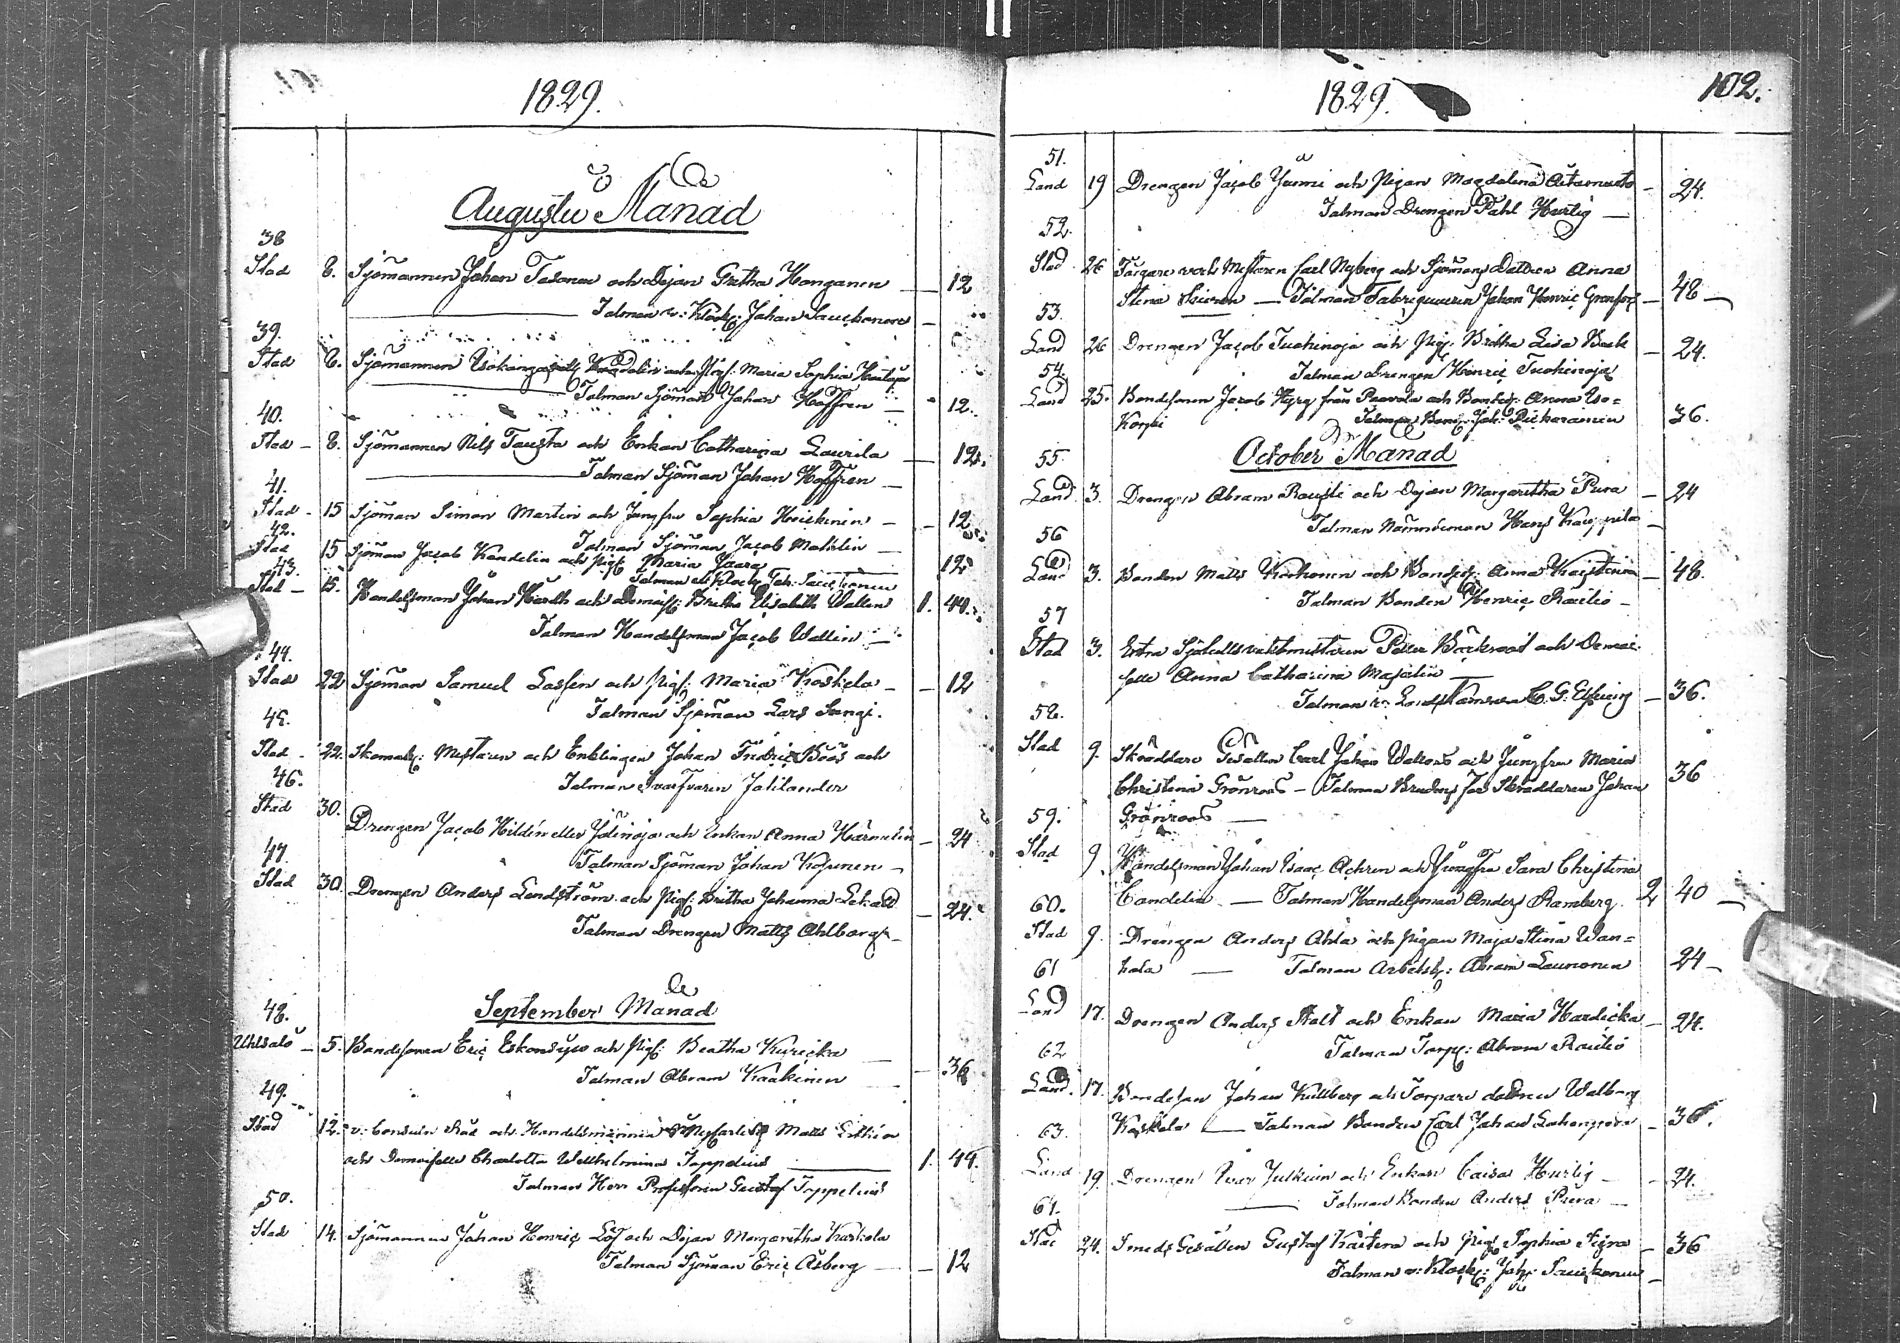 1829.
Augusti Månad
38
Stad 8. Sjömannen Johan Talonen och Pigan Gretha Honganen — 12
Talman v: Klock: Johan Sauckonen
39.
Stad 8. Sjömannen och Pig: Maria Sophia
Talman Sjöman Johan Hoffren — 12.
40.
Stad — 8. Sjömannen Nils Tausta och Enkan Catharina Laurila — 12.
Talman Sjöman Johan Hoffren —
41.
Stad — 15 Sjöman Simon Martin och Jungfru Sophia Heickinen — 12
Talman Sjöman Jacob
42.
Stad 15 Sjöman Jacob Kandelin och Pig: Maria Jaara 12
Talman v: Klock: Joh: Sauckonen
43.
Stad — 15. Handelsman Johan Hårdh och Demois: Britha Elisabeth Wallen 1. 44.
Talman Handelsman Jacob Wallin —
44.
Stad 22 Sjöman Samuel Lassen och Pig: Maria Koskela — 12
Talman Sjöman Lars Sangi.
45.
Stad — 22. Skomak: Mestaren och Enklingen Johan Fredric Böös och
Talman Svarfvaren Jahlander
46.
Stad 30. Drengen Jacob Hilden eller Ydinoja och Enkan Anna — 24
Talman Sjöman Johan Kopunen —
47.
Stad 30. Drengen Anders Lindström och Pig: Britha Johanna — 24.
Talman Drengen Matts Ahlberg —
September Månad
48.
Uhlsalo — 5. Bondesonen Eric och Pig: Beatha Kuricka — 36
Talman Abram Kaakinen
49.
Stad 12. v: Consuln Råd och Handelsmannen i Matts
och Demoiselle Charlotta Wilhelmina Toppelius — 1. 44.
Talman Herr Professoren Gustaf Toppelius
50.
Stad 14. Sjömannen Johan Henric Löf och Pigan Margaretha Koskela
Talman Sjöman Eric Åsberg — 12
1829. 102.
51.
Land 19 Drengen Jacob Junni och Pigan Magdalena — 24.
Talman Drengen Pahl Hurtig —
52.
Stad 26 Färgare verks Mestaren Carl Nyberg och Sjömans Dottren Anna
Stina — Talman Fabriqueuren Johan Henric — 48 —
53.
Land 26 Drengen Jacob Tuohinoja och Pig: Britha Lisa — 24.
Talman Drengen Henric Tuohinoja
54.
Land 25. Bondesonen Jacob från Paavola och Anna Iso=
Korpi Talman Joh: 36.
October Månad
55
Land 3. Drengen Abram Rousti och Pigan Margaretha Pura — 24
Talman Nämndeman Hans Kauppila
56
Land 3. Bonden Matts Karhonen och Anna — 48.
Talman Bonden Henric Rautio —
57
Stad 3. Extra Sjötullsvaktmästaren Petter Bäckroot och Demoi
selle Anna Catharina Majalin —
Talman C: G: — 36.
58.
Stad 9. Skräddare Gesällen Carl Johan och Jungfru Maria
Christina Grönroos — Talman Skräddaren Johan 36
Grönroos —
59.
Stad 9. Handelsman Johan Isaac Achren och Jungfru Sara Christina
Candelin — Talman Handelsman Anders Ramberg. 2 40 —
60.
Stad 9. Drengen Anders Ahla och Pigan Maja Stina Wan=
hala — Talman Arbetsk: Abram Launonen 24 —
61
Land 17. Drengen Anders Stolt och Enkan Maria Hardicka — 24.
Talman Torp: Abram Rautio
62
Land. 17. Bondeson Johan Kullberg och Torpare dottren Walborg
Koskela — Talman Bonden Carl Johan — 36.
63.
Land 19. Drengen Ivar Julkuin och Enkan Caisa Hurtig — 24.
Talman Bonden Anders Pura —
64.
Stad 24. Smeds Gesällen Gustaf och Pig: Sophia — 36
Talman v: Klock: Joh: Sauckonen —